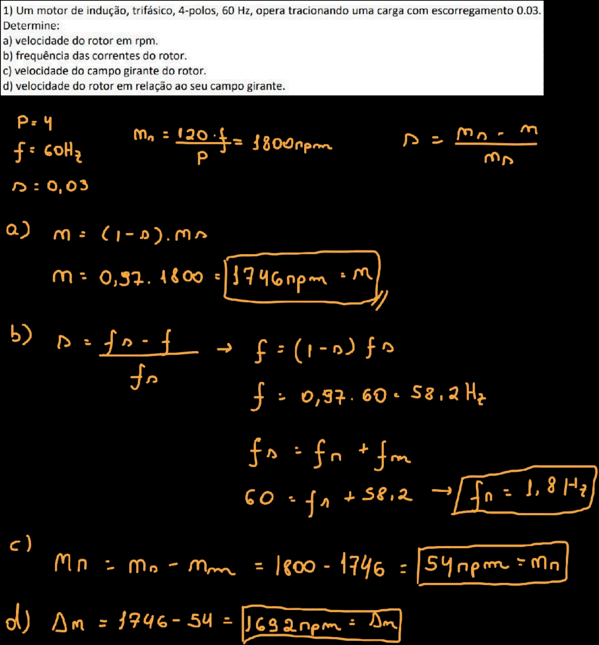 1) Um motor de indução, trifásico, 4-polos, 60 Hz, opera tracionando uma carga com escorregamento 0.03.
Determine:
a) velocidade do rotor em rpm.
b) frequência das correntes do rotor.
c) velocidade do campo girante do rotor.
d) velocidade do rotor em relação ao seu campo girante.
P = 4
f = 60Hz
s = 0,03
ms = 120·f/P = 1800rpm
s = ms - m / ms
a) m = (1-s).ms
m = 0,97.1800 = 1746rpm = m
b) s = fs - f / fs → f = (1-s) fs
f = 0,97.60 = 58,2Hz
fs = fr + fm
60 = fr + 58,2 → fr = 1,8Hz
c) mr = ms - mm = 1800 - 1746 = 54rpm = mr
d) Δm = 1746 - 54 = 1692rpm = Δm